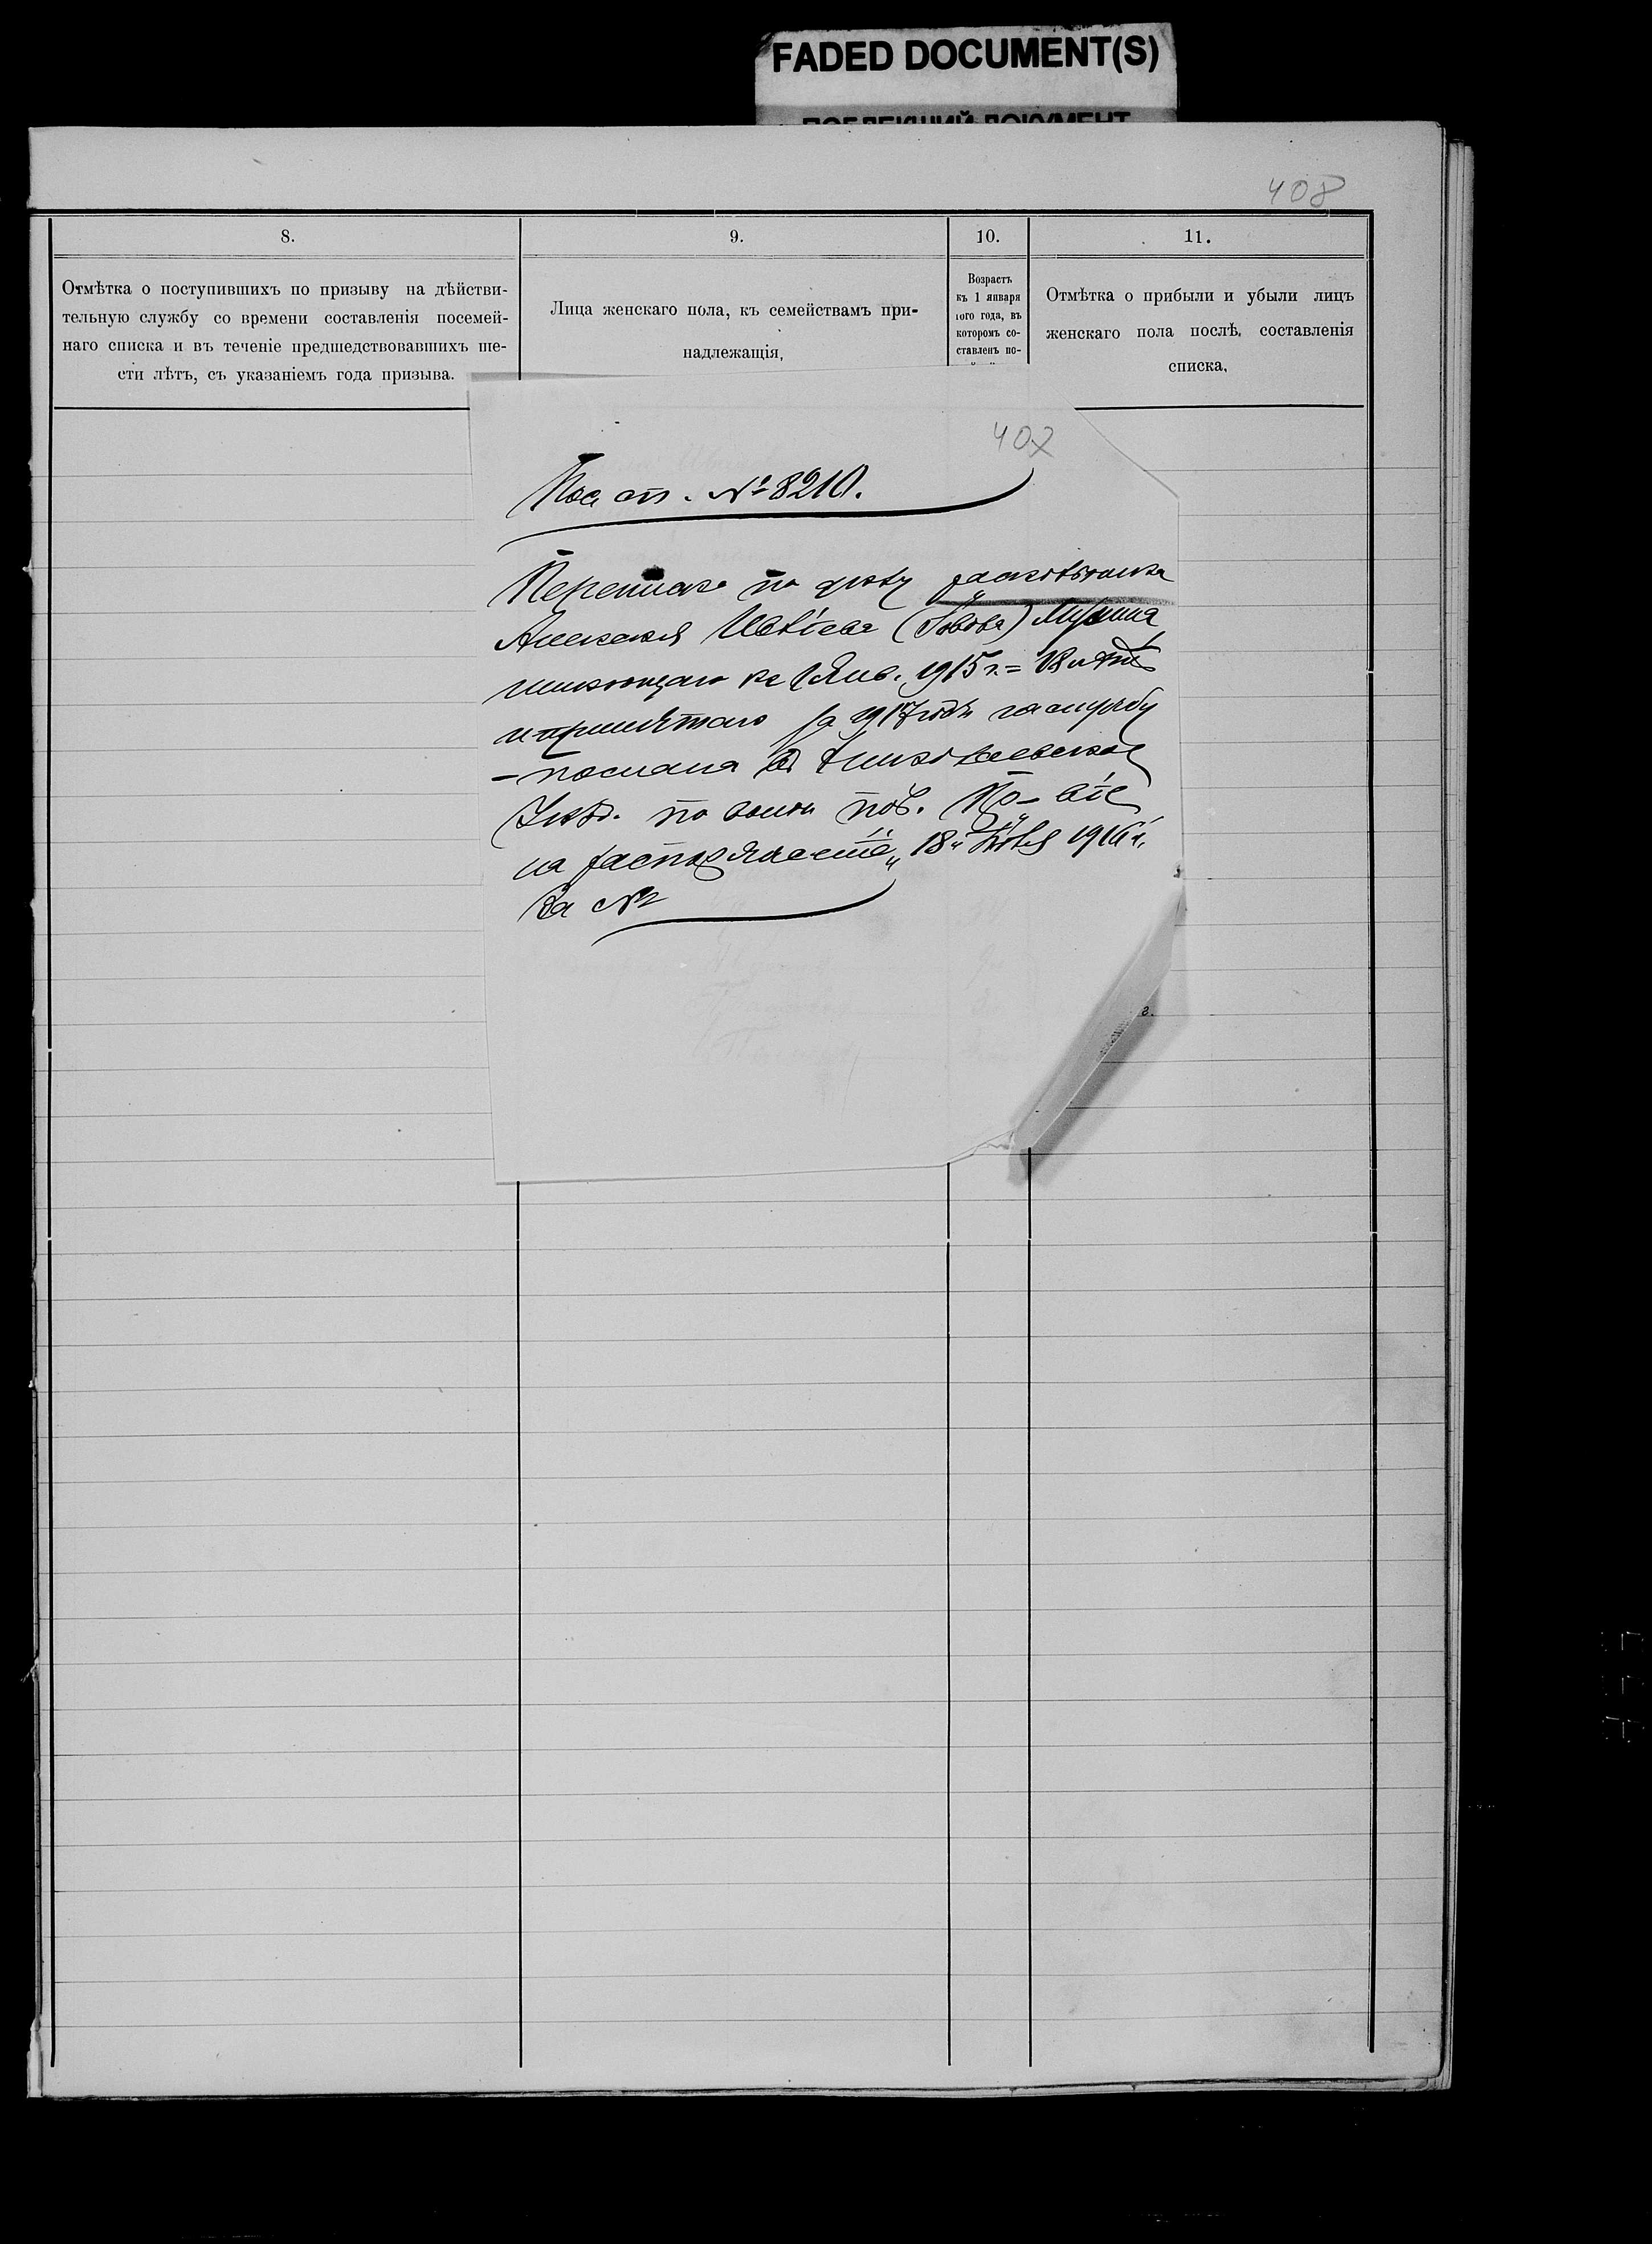 FADED DOCUMENT(S)
ПОБЛЕКШИЙ ДОКУМЕНТ
408
8.
Отмѣтка о поступившихъ по призыву на дѣйстви-
тельную службу со времени составленія посемей-
наго списка и въ теченіе предшедствовавшихъ ше-
сти лѣтъ, съ указаніемъ года призыва.
9.
Лица женскаго пола, къ семействамъ при-
надлежащія,
10.
Возрастъ
къ 1 января
того года, въ
которомъ со-
ставленъ по-
11.
Отмѣтка о прибыли и убыли лицъ
женскаго пола послѣ, составленія
списка,
407
Пос. сп. № 8210.
Переписка по дѣлу
Алексея (Іовова)
къ 1 Янв. 1915 г. = 18 лѣтъ
и принятаго за 1917 годъ на службу
- послана въ Николаевское
Уѣзд. по воин. пов. По-віе
на распоряженіе „18" 1916 г.
За №